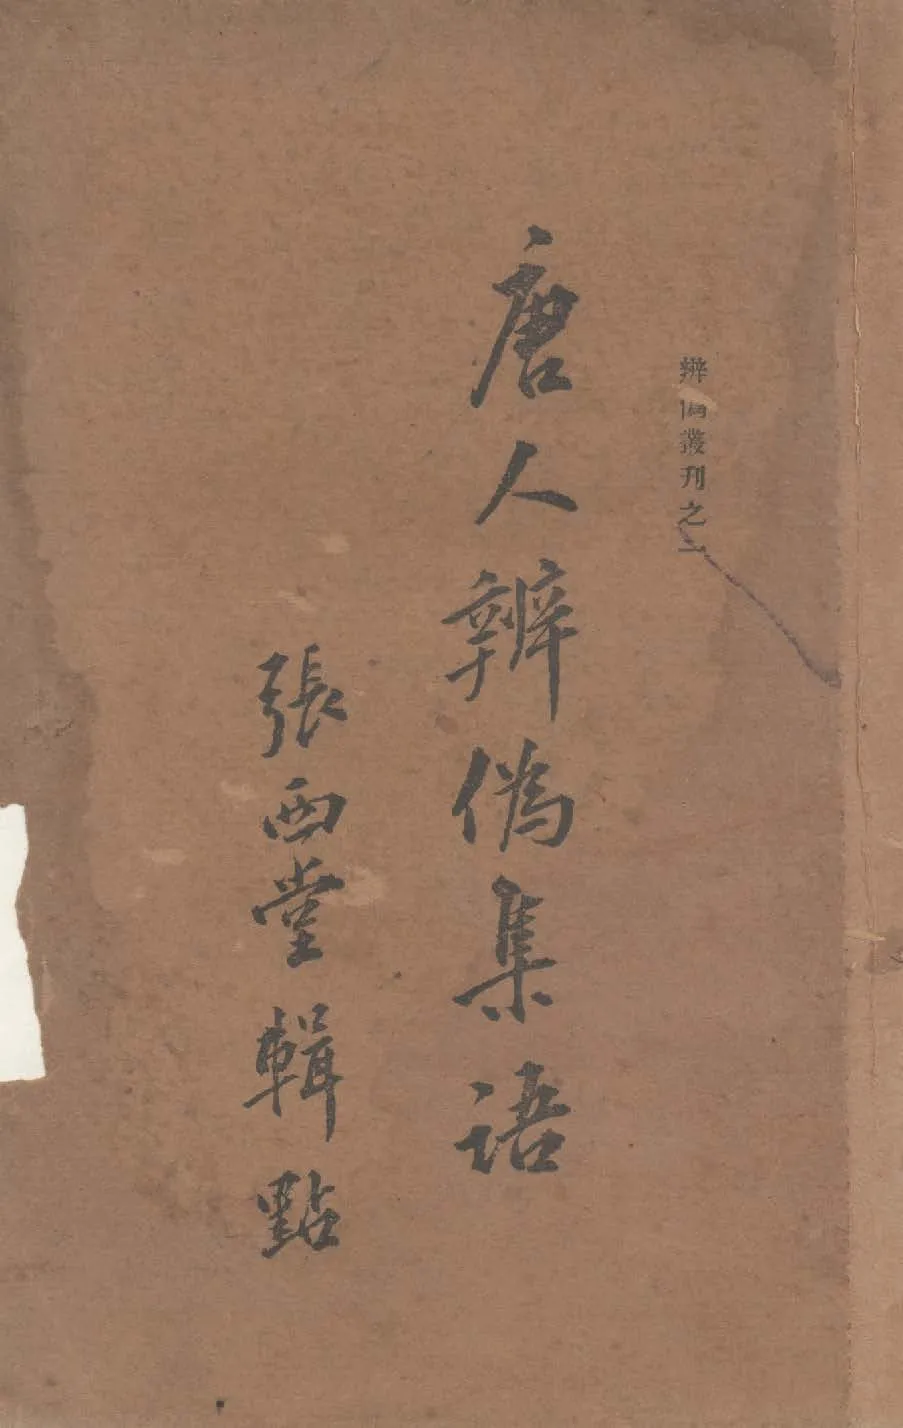 辨偽叢刊之一
唐人辨偽集語
張西堂輯點